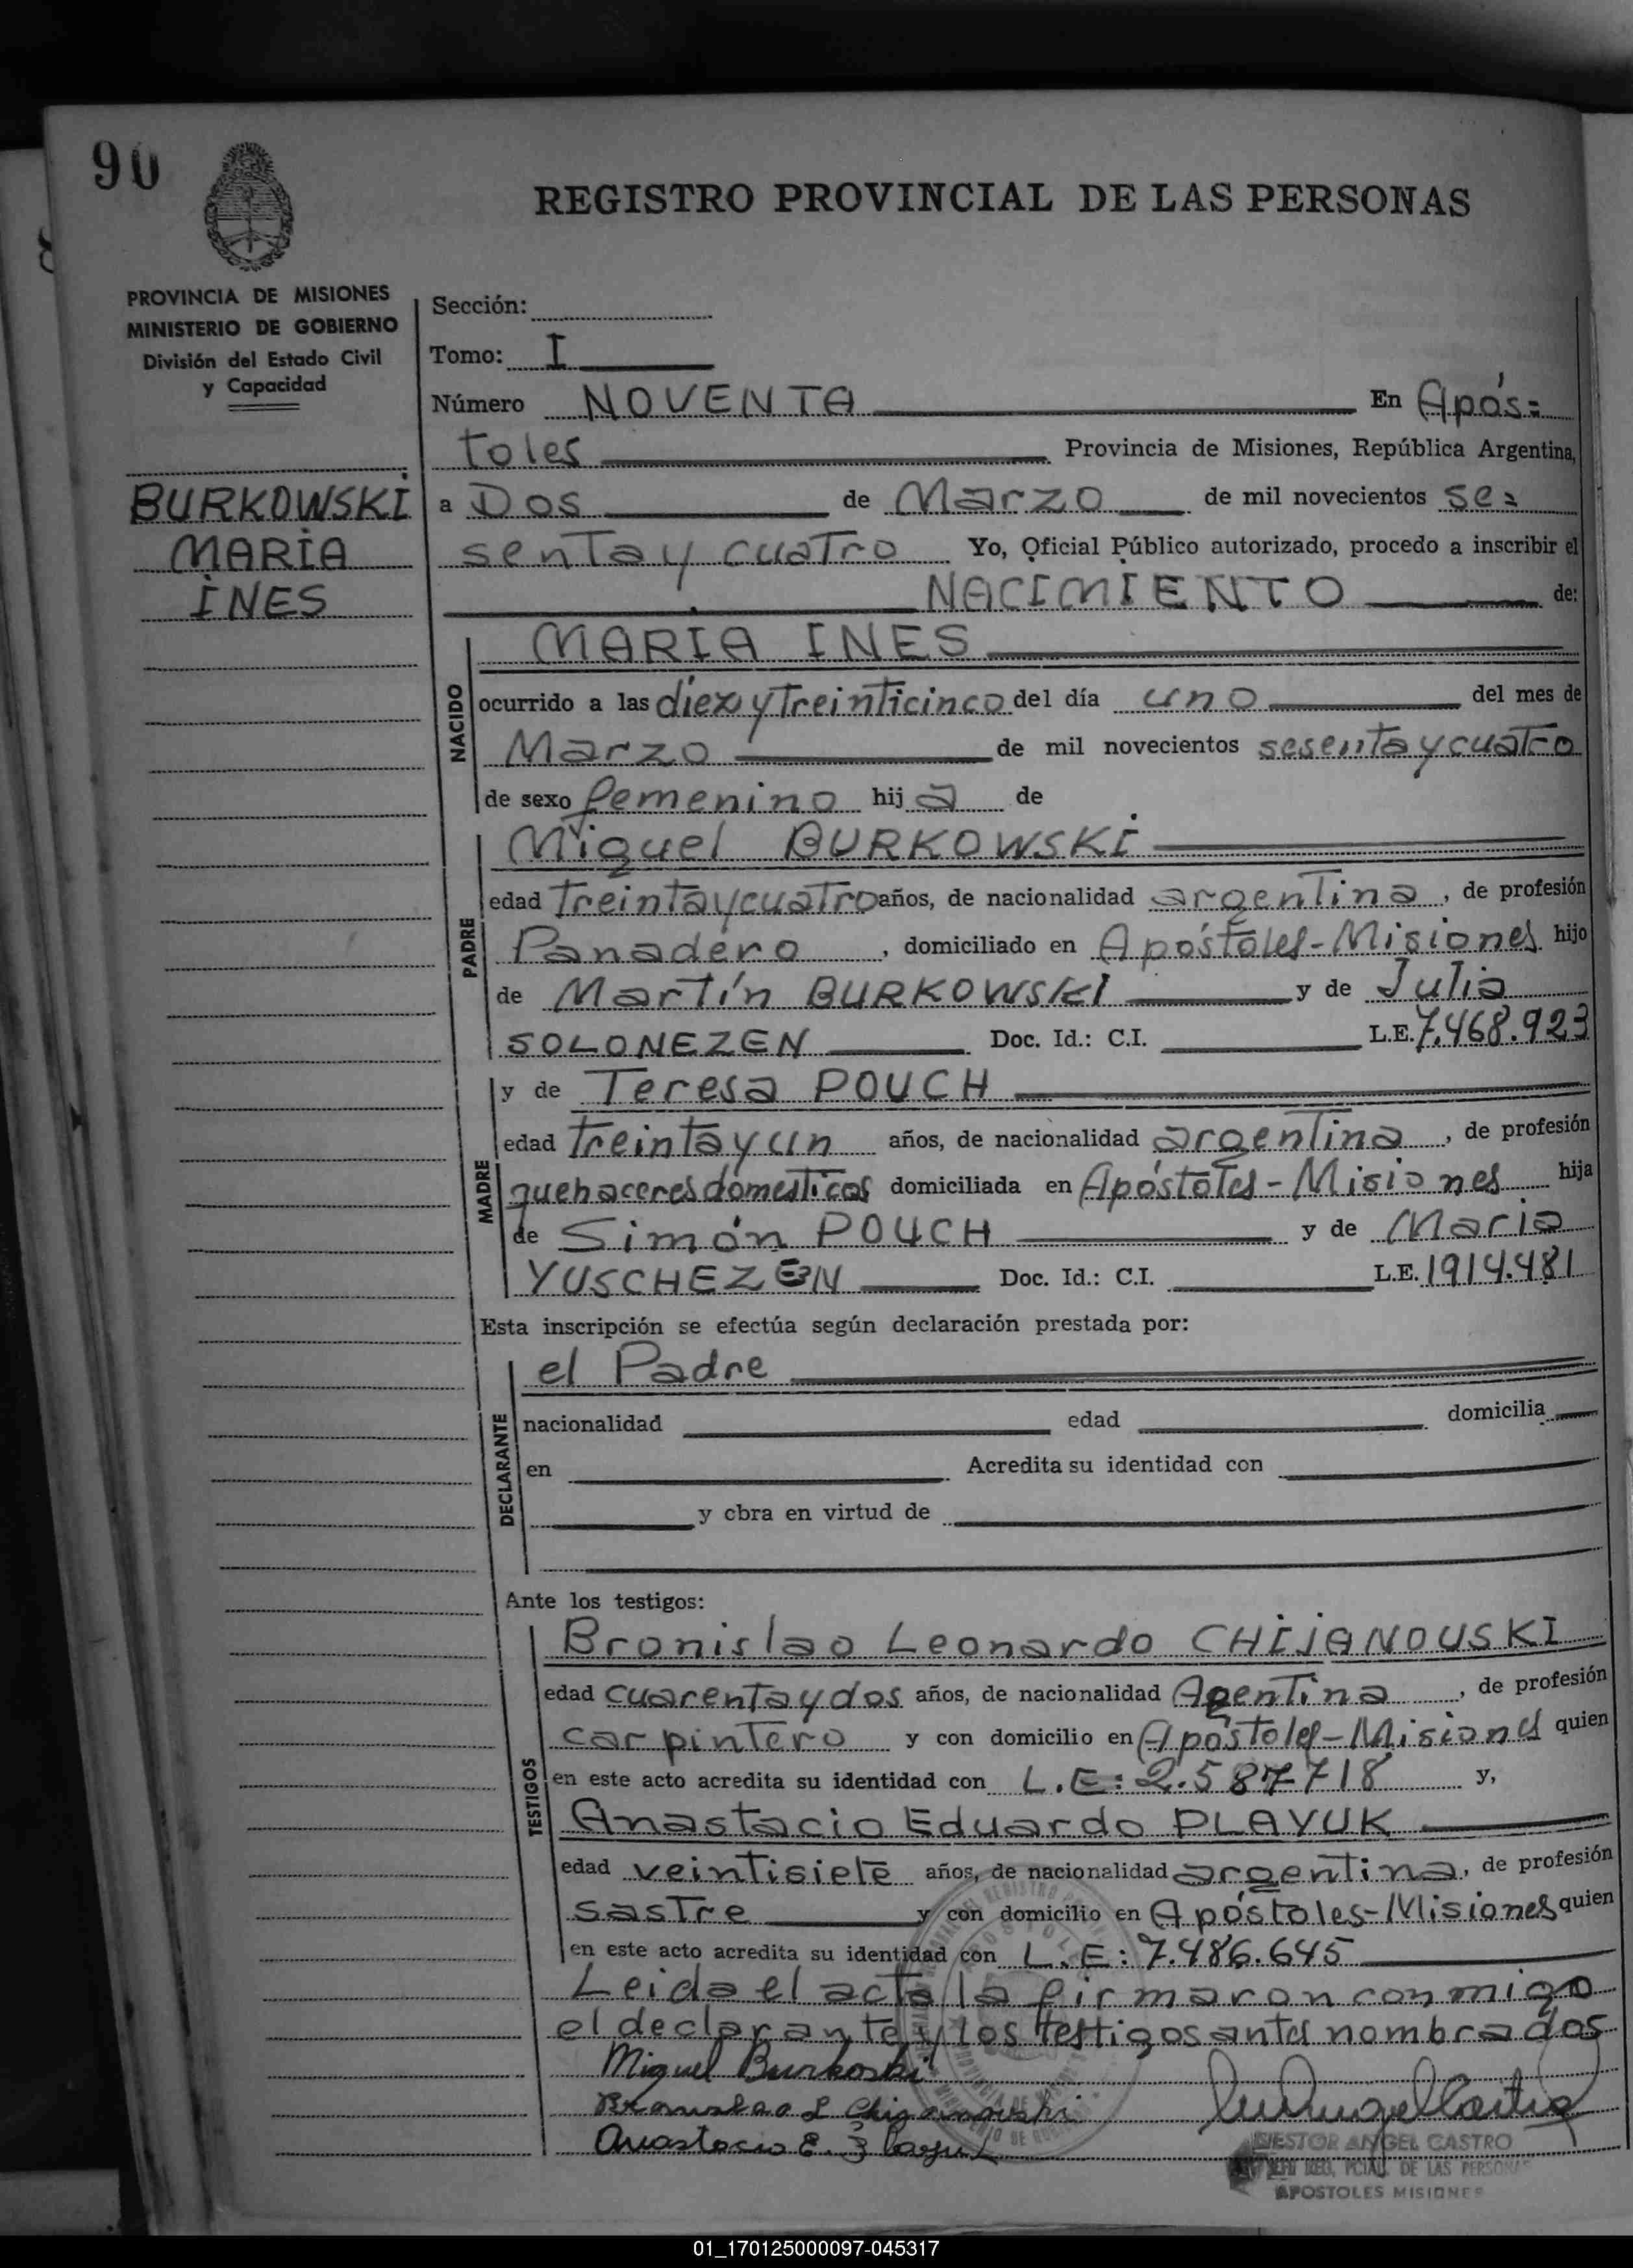 90
REGISTRO PROVINCIAL DE LAS PERSONAS
PROVINCIA DE MISIONES
MINISTERIO DE GOBIERNO
División del Estado Civil
y Capacidad
BURKOWSKI
MARIA
INES
Sección:
Tomo: I
Número NOVENTA En Após=
toles Provincia de Misiones, República Argentina,
a Dos de Marzo de mil novecientos se=
senta y cuatro Yo, Oficial Público autorizado, procedo a inscribir el
NACIMIENTO de:
NACIDO
MARIA INES
ocurrido a las diez y treinticinco del día uno del mes de
Marzo de mil novecientos sesenta y cuatro
de sexo femenino hij a de
PADRE
Miguel BURKOWSKI
edad treinta y cuatro años, de nacionalidad argentina, de profesión
Panadero, domiciliado en Apóstoles-Misiones hijo
de Martín BURKOWSKI y de Julia
SOLONEZEN Doc. Id.: C.I. L.E. 7.468.923
MADRE
y de Teresa POUCH
edad treinta y un años, de nacionalidad argentina, de profesión
quehaceres domesticos domiciliada en Apóstoles-Misiones hija
de Simón POUCH y de Maria
YUSCHEZEN Doc. Id.: C.I. L.E. 1914.481
Esta inscripción se efectúa según declaración prestada por:
DECLARANTE
el Padre
nacionalidad edad domicilia
en Acredita su identidad con
y obra en virtud de
Ante los testigos:
TESTIGOS
Bronislao Leonardo CHIJANOUSKI
edad cuarenta y dos años, de nacionalidad Agentina, de profesión
carpintero y con domicilio en Apóstoles-Misiones quien
en este acto acredita su identidad con L.E: 2.587718 y,
Anastacio Eduardo PLAYUK
edad veintisiete años, de nacionalidad argentina, de profesión
sastre y con domicilio en Apóstoles-Misiones quien
en este acto acredita su identidad con L.E: 7.486.645
Leida el acta la firmaron conmigo
el declarante y los testigos antes nombrados
Miguel Burkoski
Bronislao L
Anastacio E.
NESTOR ANGEL CASTRO
REG. PCIAL. DE LAS PERSONAS
APOSTOLES MISIONES
01_170125000097-045317